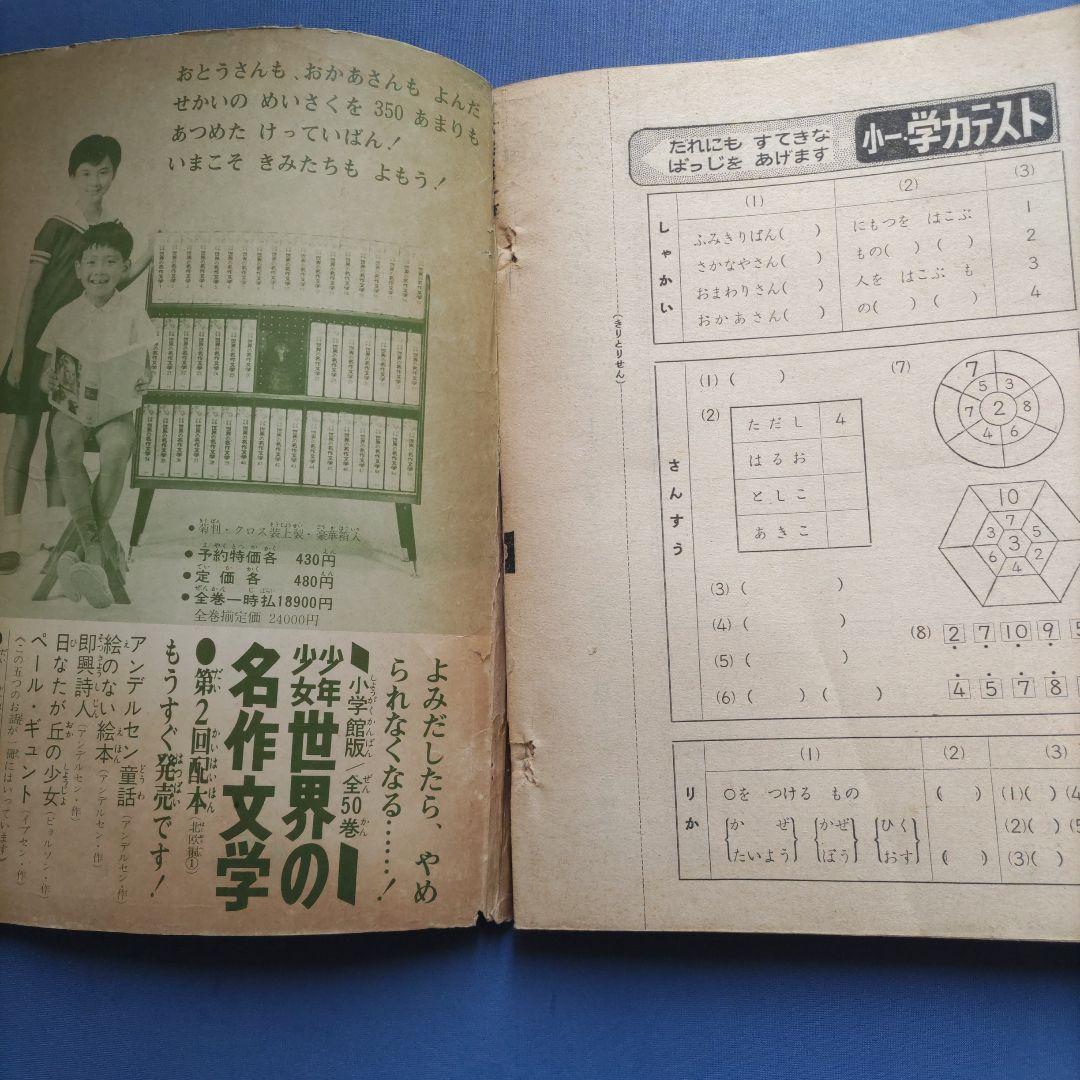 おとうさんも、おかあさんも よんだ
せかいの めいさくを 350 あまりも
あつめた けっていばん！
いまこそ きみたちも よもう！
●菊判・クロス装上製・豪華箱入
●予約特価各 430円
●定価各 480円
●全巻一時払18900円
全巻揃定価 24000円
よみだしたら、やめ
られなくなる……！
小学館版／全50巻
少年少女世界の
名作文学
●第2回配本(北欧編①)
もうすぐ発売です！
アンデルセン童話(アンデルセン・作)
絵のない絵本(アンデルセン・作)
即興詩人(アンデルセン・作)
日なたが丘の少女(ビョルソン・作)
ペール・ギュント(イプセン・作)
(この五つのお話が一冊にはいっています)
(きりとりせん)
だれにも すてきな
ばっじを あげます
小一・学力テスト
しゃかい
(1) (2) (3)
ふみきりばん( )
さかなやさん( )
おまわりさん( )
おかあさん( )
にもつを はこぶ
もの( ) ( )
人を はこぶ も
の( ) ( )
1
2
3
4
さんすう
(1) ( )
(2)
ただし 4
はるお
としこ
あきこ
(3) ( )
(4) ( )
(5) ( )
(6) ( ) ( )
(7)
7
5 3
7 2 8
4 6
10
7
3 5
3
6 2
4
(8) 2 7 10 9 5
4 5 7 8
りか
(1) (2) (3)
○を つける もの
{かぜ たいよう} {かぜ ぼう} {ひく おす}
( )
( )
(1)( ) (4
(2)( ) (5
(3)( )